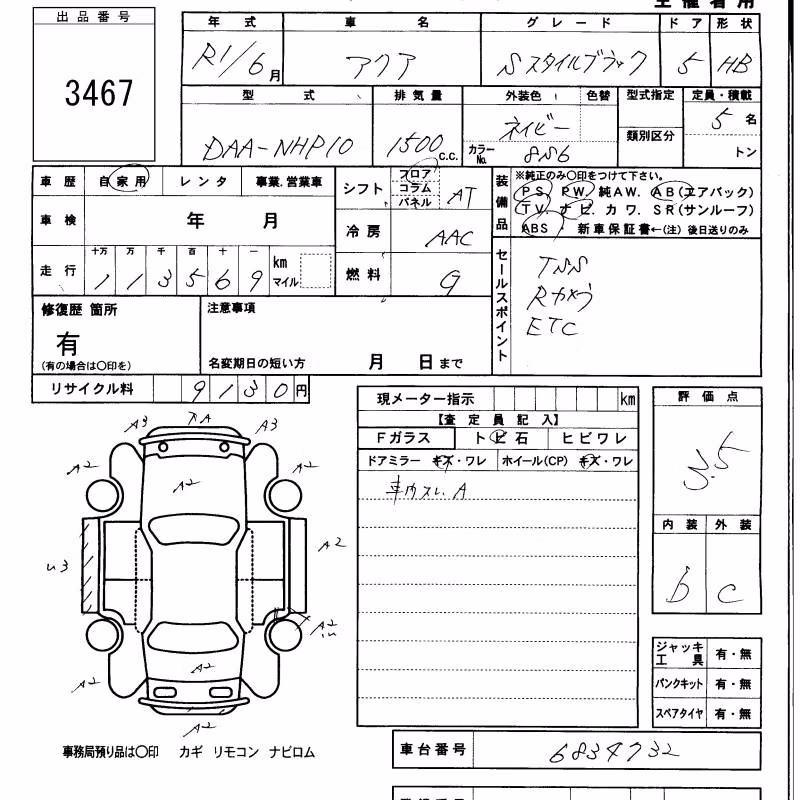 主催者用
出品番号
3467
年式 車名 グレード ドア 形状
R1/6月 アクア Sスタイルブラック 5 HB
型式 排気量 外装色 色替 型式指定 定員・積載
DAA-NHP10 1500 c.c. ネイビー 類別区分 5名
カラーNo. 8S6 トン
車歴 自家用 レンタ 事業.営業車
シフト フロア コラム パネル AT
装備品 ※純正のみ○印をつけて下さい。
PS. PW. 純AW. AB(エアバック)
TV. ナビ. カワ. SR(サンルーフ)
ABS ・ 新車保証書←(注) 後日送りのみ
車検 年 月
冷房 AAC
走行 十万 万 千 百 十 一
113569 km マイル
燃料 G
セールスポイント
TSS
Rカメラ
ETC
修復歴 箇所
有
(有の場合は○印を)
注意事項
名変期日の短い方 月 日まで
リサイクル料 9130円
現メーター指示 km
【査定員記入】
Fガラス トビ石 ヒビワレ
ドアミラー キズ・ワレ ホイール(CP) キズ・ワレ
車内スレ A
評価点
3.5
内装 外装
b c
A3 A A3
A2 A2 A2
U3 A2
A2
A2 A2
A2
ジャッキ工具 有・無
パンクキット 有・無
スペアタイヤ 有・無
事務局預り品は○印 カギ リモコン ナビロム
車台番号 6834732